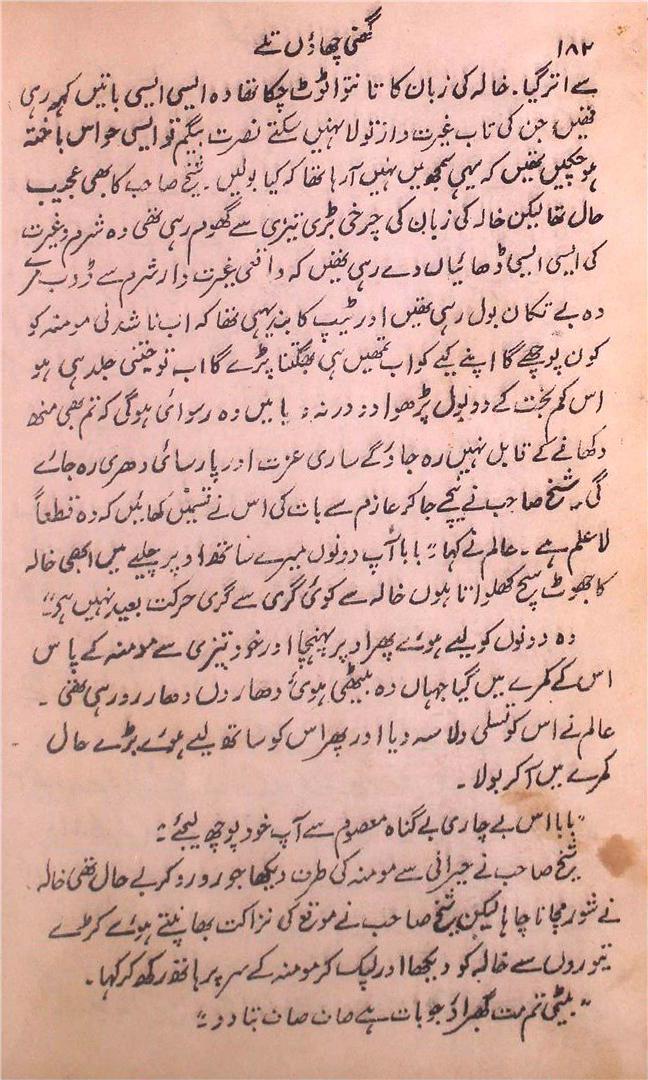 ۱۸۲
گھنی چھاؤں تلے
سے اتر گیا۔ خالہ کی زبان کا تانتوا ٹوٹ چکا تھا وہ ایسی ایسی باتیں کہہ رہی
تھیں جن کی تاب غیرت دار تو لا نہیں سکتے نصرت بیگم تو ایسی حواس باختہ
ہو چکیں تھیں کہ یہی سمجھ میں نہیں آ رہا تھا کہ کیا بولیں۔ شیخ صاحب کا بھی عجیب
حال تھا لیکن خالہ کی زبان کی چرخی بڑی تیزی سے گھوم رہی تھی وہ شرم و غیرت
کی ایسی ایسی ڈھائیاں دے رہی تھیں کہ واقعی غیرت دار شرم سے ڈوب مرے
وہ بے تکان بول رہی تھیں اور ٹیپ کا بند یہی تھا کہ اب ناشدنی مومنہ کو
کون پوچھے گا اپنے کیے کو اب تمھیں ہی بھگتنا پڑے گا اب تو جتنی جلد ہی ہو
اس کم بخت کے دو بول پڑھوا دو ورنہ دنیا میں وہ رسوائی ہوگی کہ تم بھی منھ
دکھانے کے قابل نہیں رہ جاؤ گے ساری عزت اور پارسائی دھری رہ جائے
گی۔ شیخ صاحب نے نیچے جا کر عازم سے بات کی اس نے قسمیں کھائیں کہ وہ قطعاً
لاعلم ہے۔ عالم نے کہا "بابا آپ دونوں میرے ساتھ اوپر چلیے میں ابھی خالہ
کا جھوٹ سچ کھلواتا ہوں خالہ سے کوئی گری سے گری حرکت بعید نہیں ہے"
وہ دونوں کو لیے ہوئے پھر اوپر پہنچا اور خود تیزی سے مومنہ کے پاس
اس کے کمرے میں گیا جہاں وہ بیٹھی ہوئی دھاروں دھار رو رہی تھی۔
عالم نے اس کو تسلی دلاسہ دیا اور پھر اس کو ساتھ لیے ہوئے بڑے حال
کمرے میں آ کر بولا۔
"بابا اس بے چاری بے گناہ معصوم سے آپ خود پوچھ لیجئے"
شیخ صاحب نے حیرانی سے مومنہ کی طرف دیکھا جو رو رو کر بے حال تھی خالہ
نے شور مچانا چاہا لیکن شیخ صاحب نے موقع کی نزاکت بھانپتے ہوئے کڑے
تیوروں سے خالہ کو دیکھا اور لپک کر مومنہ کے سر پر ہاتھ رکھ کر کہا۔
"بیٹی تم مت گھبراؤ جو بات ہے صاف صاف بتا دو"